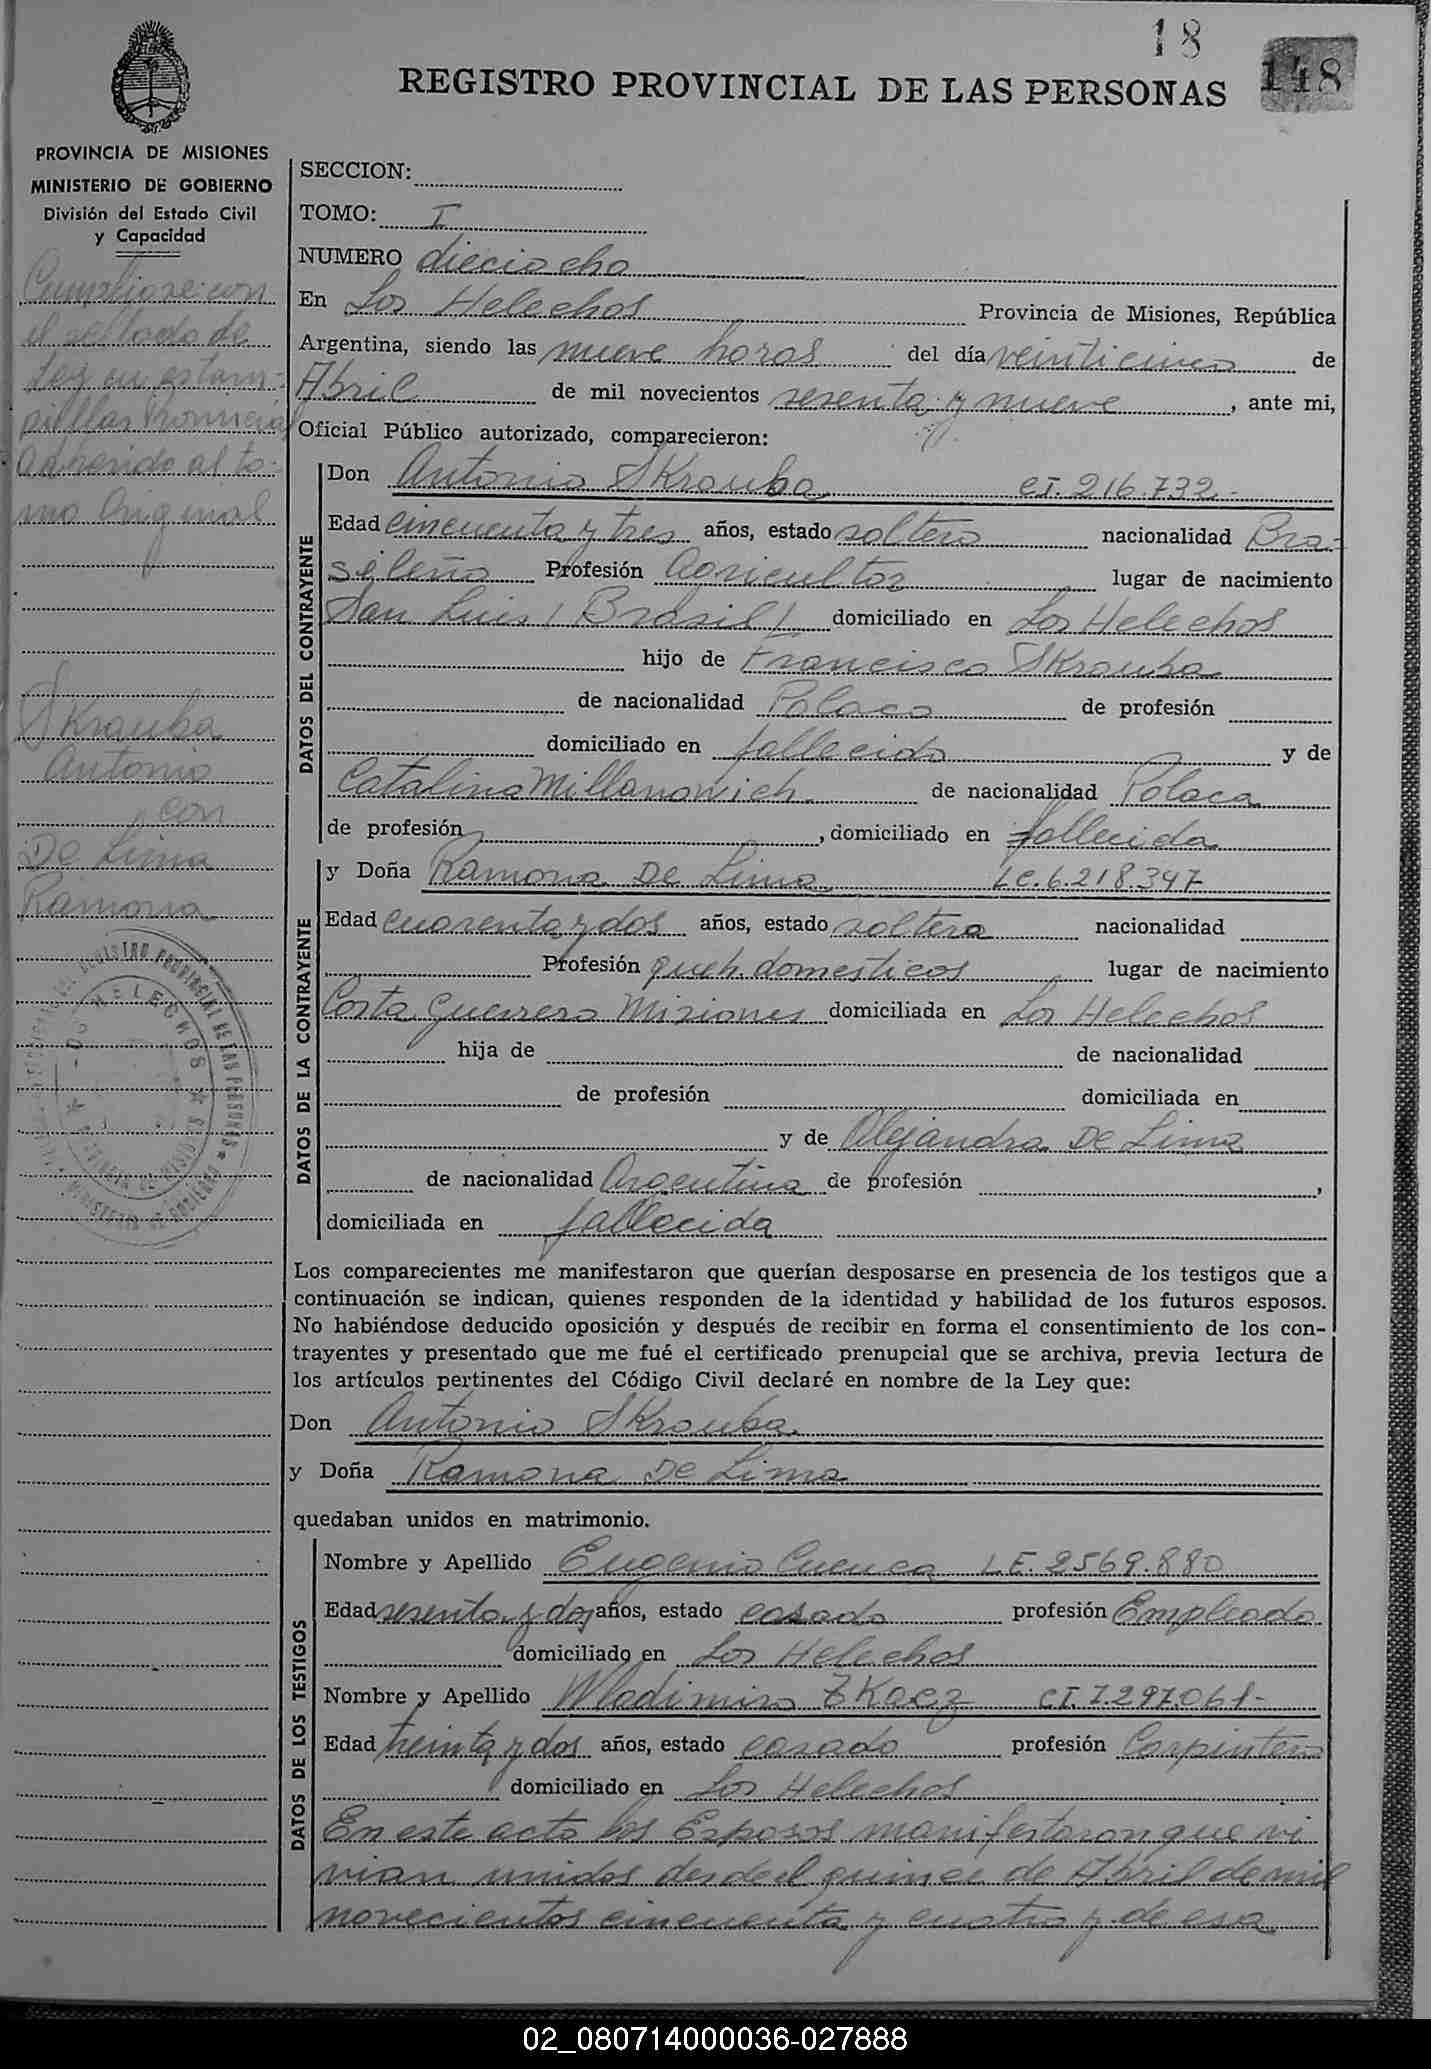 18
148
REGISTRO PROVINCIAL DE LAS PERSONAS
PROVINCIA DE MISIONES
MINISTERIO DE GOBIERNO
División del Estado Civil
y Capacidad
Cumpliose con
el sellado de
Ley en estam-
pillas Provincial
adherido al to-
mo Original
Skrauba
Antonio
con
De Lima
Ramona
LOS HELECHOS
SECCION:
TOMO: I
NUMERO dieciocho
En Los Helechos Provincia de Misiones, República
Argentina, siendo las nueve horas del día veinticinco de
Abril de mil novecientos sesenta y nueve, ante mi,
Oficial Público autorizado, comparecieron:
DATOS DEL CONTRAYENTE
Don Antonio Skrauba CI. 216.732.-
Edad cincuenta y tres años, estado soltero nacionalidad Bra-
sileño Profesión Agricultor lugar de nacimiento
San Luis / Brasil / domiciliado en Los Helechos
hijo de Francisco Skrauba
de nacionalidad Polaco de profesión
domiciliado en fallecido y de
Catalina Millanowich de nacionalidad Polaca
de profesión , domiciliado en fallecida
DATOS DE LA CONTRAYENTE
y Doña Ramona De Lima LC. 6.218.347
Edad cuarenta y dos años, estado soltera nacionalidad
Profesión queh. domesticos lugar de nacimiento
Costa Guerrero Misiones domiciliada en Los Helechos
hija de de nacionalidad
de profesión domiciliada en
y de Alejandra De Lima
de nacionalidad Argentina de profesión ,
domiciliada en fallecida
Los comparecientes me manifestaron que querían desposarse en presencia de los testigos que a
continuación se indican, quienes responden de la identidad y habilidad de los futuros esposos.
No habiéndose deducido oposición y después de recibir en forma el consentimiento de los con-
trayentes y presentado que me fué el certificado prenupcial que se archiva, previa lectura de
los artículos pertinentes del Código Civil declaré en nombre de la Ley que:
Don Antonio Skrauba
y Doña Ramona De Lima
quedaban unidos en matrimonio.
DATOS DE LOS TESTIGOS
Nombre y Apellido Eugenio Cuenca LE. 2569.880
Edad sesenta y dos años, estado casado profesión Empleado
domiciliado en Los Helechos
Nombre y Apellido Wladimiro CI. 7.297.061-
Edad treinta y dos años, estado casado profesión Carpintero
domiciliado en Los Helechos
En este acto los Esposos manifestaron que vi
vian unidos desde el quince de Abril de mil
novecientos cincuenta y cuatro y de esa
02_080714000036-027888